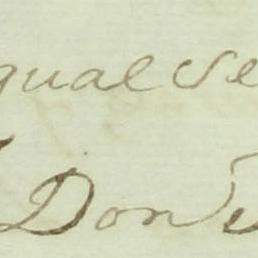 qual se
Don